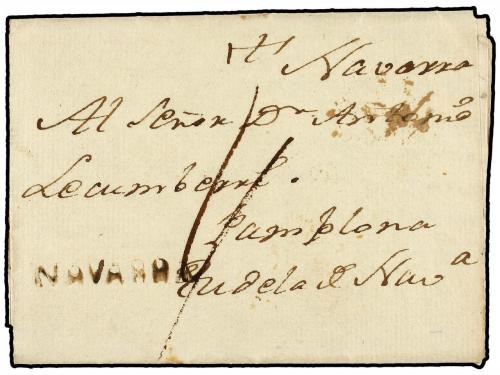 Navarra
Al Señor Dn Antonio
Lecumberri.
Pamplona
NAVARRA
Tudela de Nava